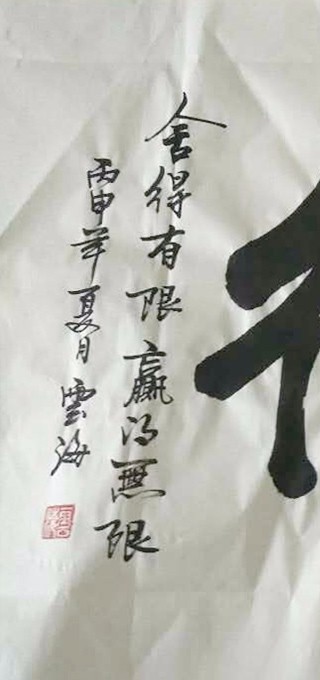 舍得有限赢得無限
丙申年夏月雲海